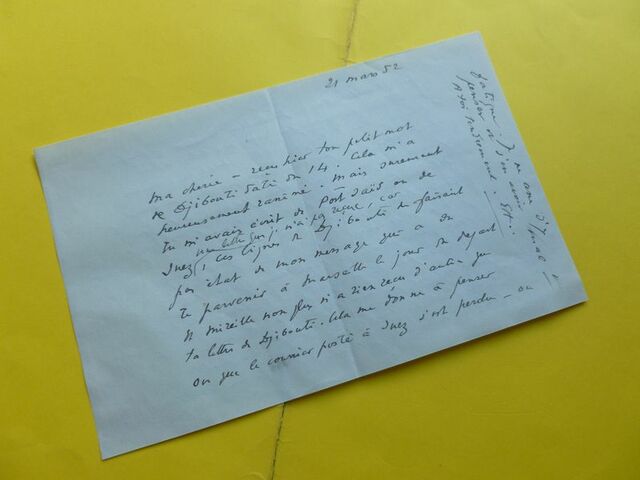 21 mars 52
Ma chérie – reçu hier ton petit mot
de Djibouti daté du 14. Cela m'a
heureusement ranimé. Mais sûrement
tu m'avais écrit de Port Saïd ou de
Suez, une lettre que je n'ai pas reçue, car
ces lignes de Djibouti ne faisant
pas état de mon message qui a dû
te parvenir à Marseille le jour du départ
Et Mireille non plus n'a rien reçu d'autre que
ta lettre de Djibouti. Cela me donne à penser
ou que le courrier posté à Suez s'est perdu – ou
fatigue.
penser à
A toi tendrement.